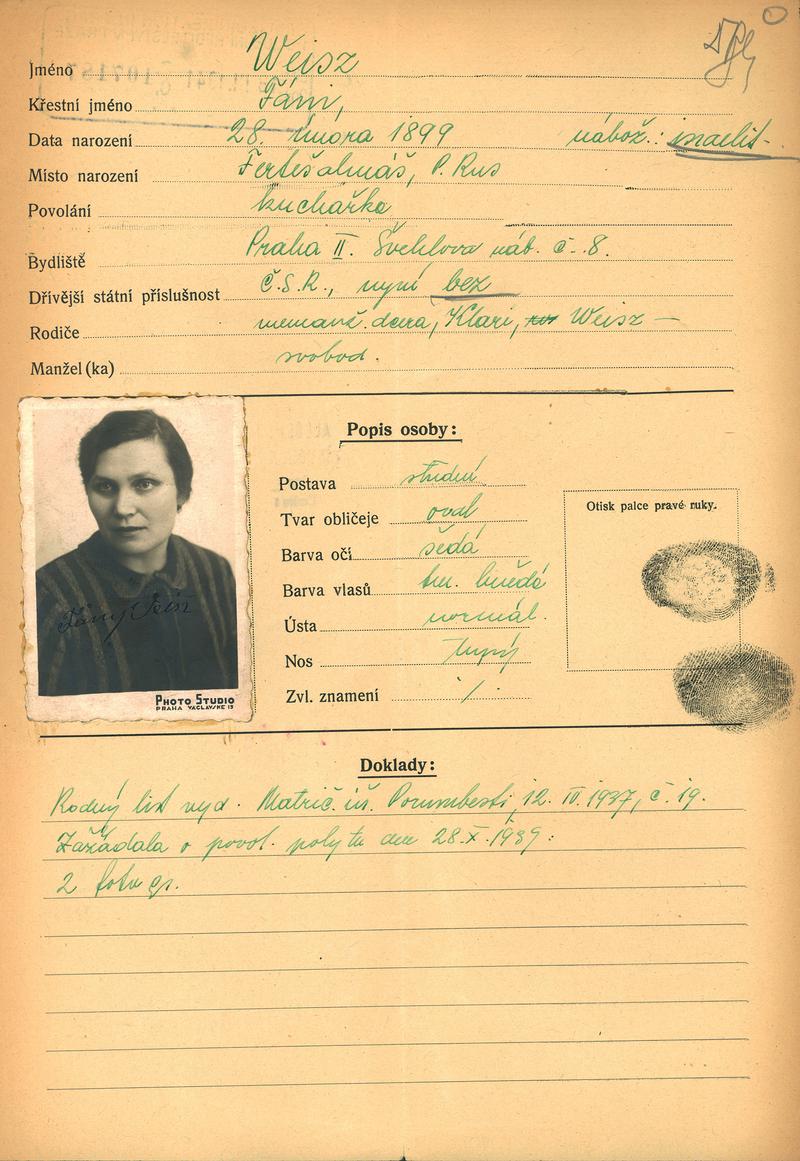 Jméno Weisz
Křestní jméno Fáni,
Data narození 28. února 1899 nábož.: israelit.
Místo narození Fertešalmáš, P. Rus
Povolání kuchařka
Bydliště Praha II. Švehlova náb. č. 8.
Dřívější státní příslušnost Č.S.R., nyní bez
Rodiče nemanž. dcera, Klari, Weisz —
Manžel(ka) svobod.
Popis osoby:
Postava střední
Tvar obličeje oval
Barva očí šedá
Barva vlasů tm. hnědé
Ústa normál.
Nos tupý
Zvl. znamení /.
Otisk palce pravé ruky.
PHOTO STUDIO
PRAHA VÁCLAVSKÉ
Doklady:
Rodný list vyd. Matrič. úř. Porumbesti, 12. IV. 1937, č. 19.
Zažádala o povol. pobytu dne 28.X.1939.
2 fotogr.